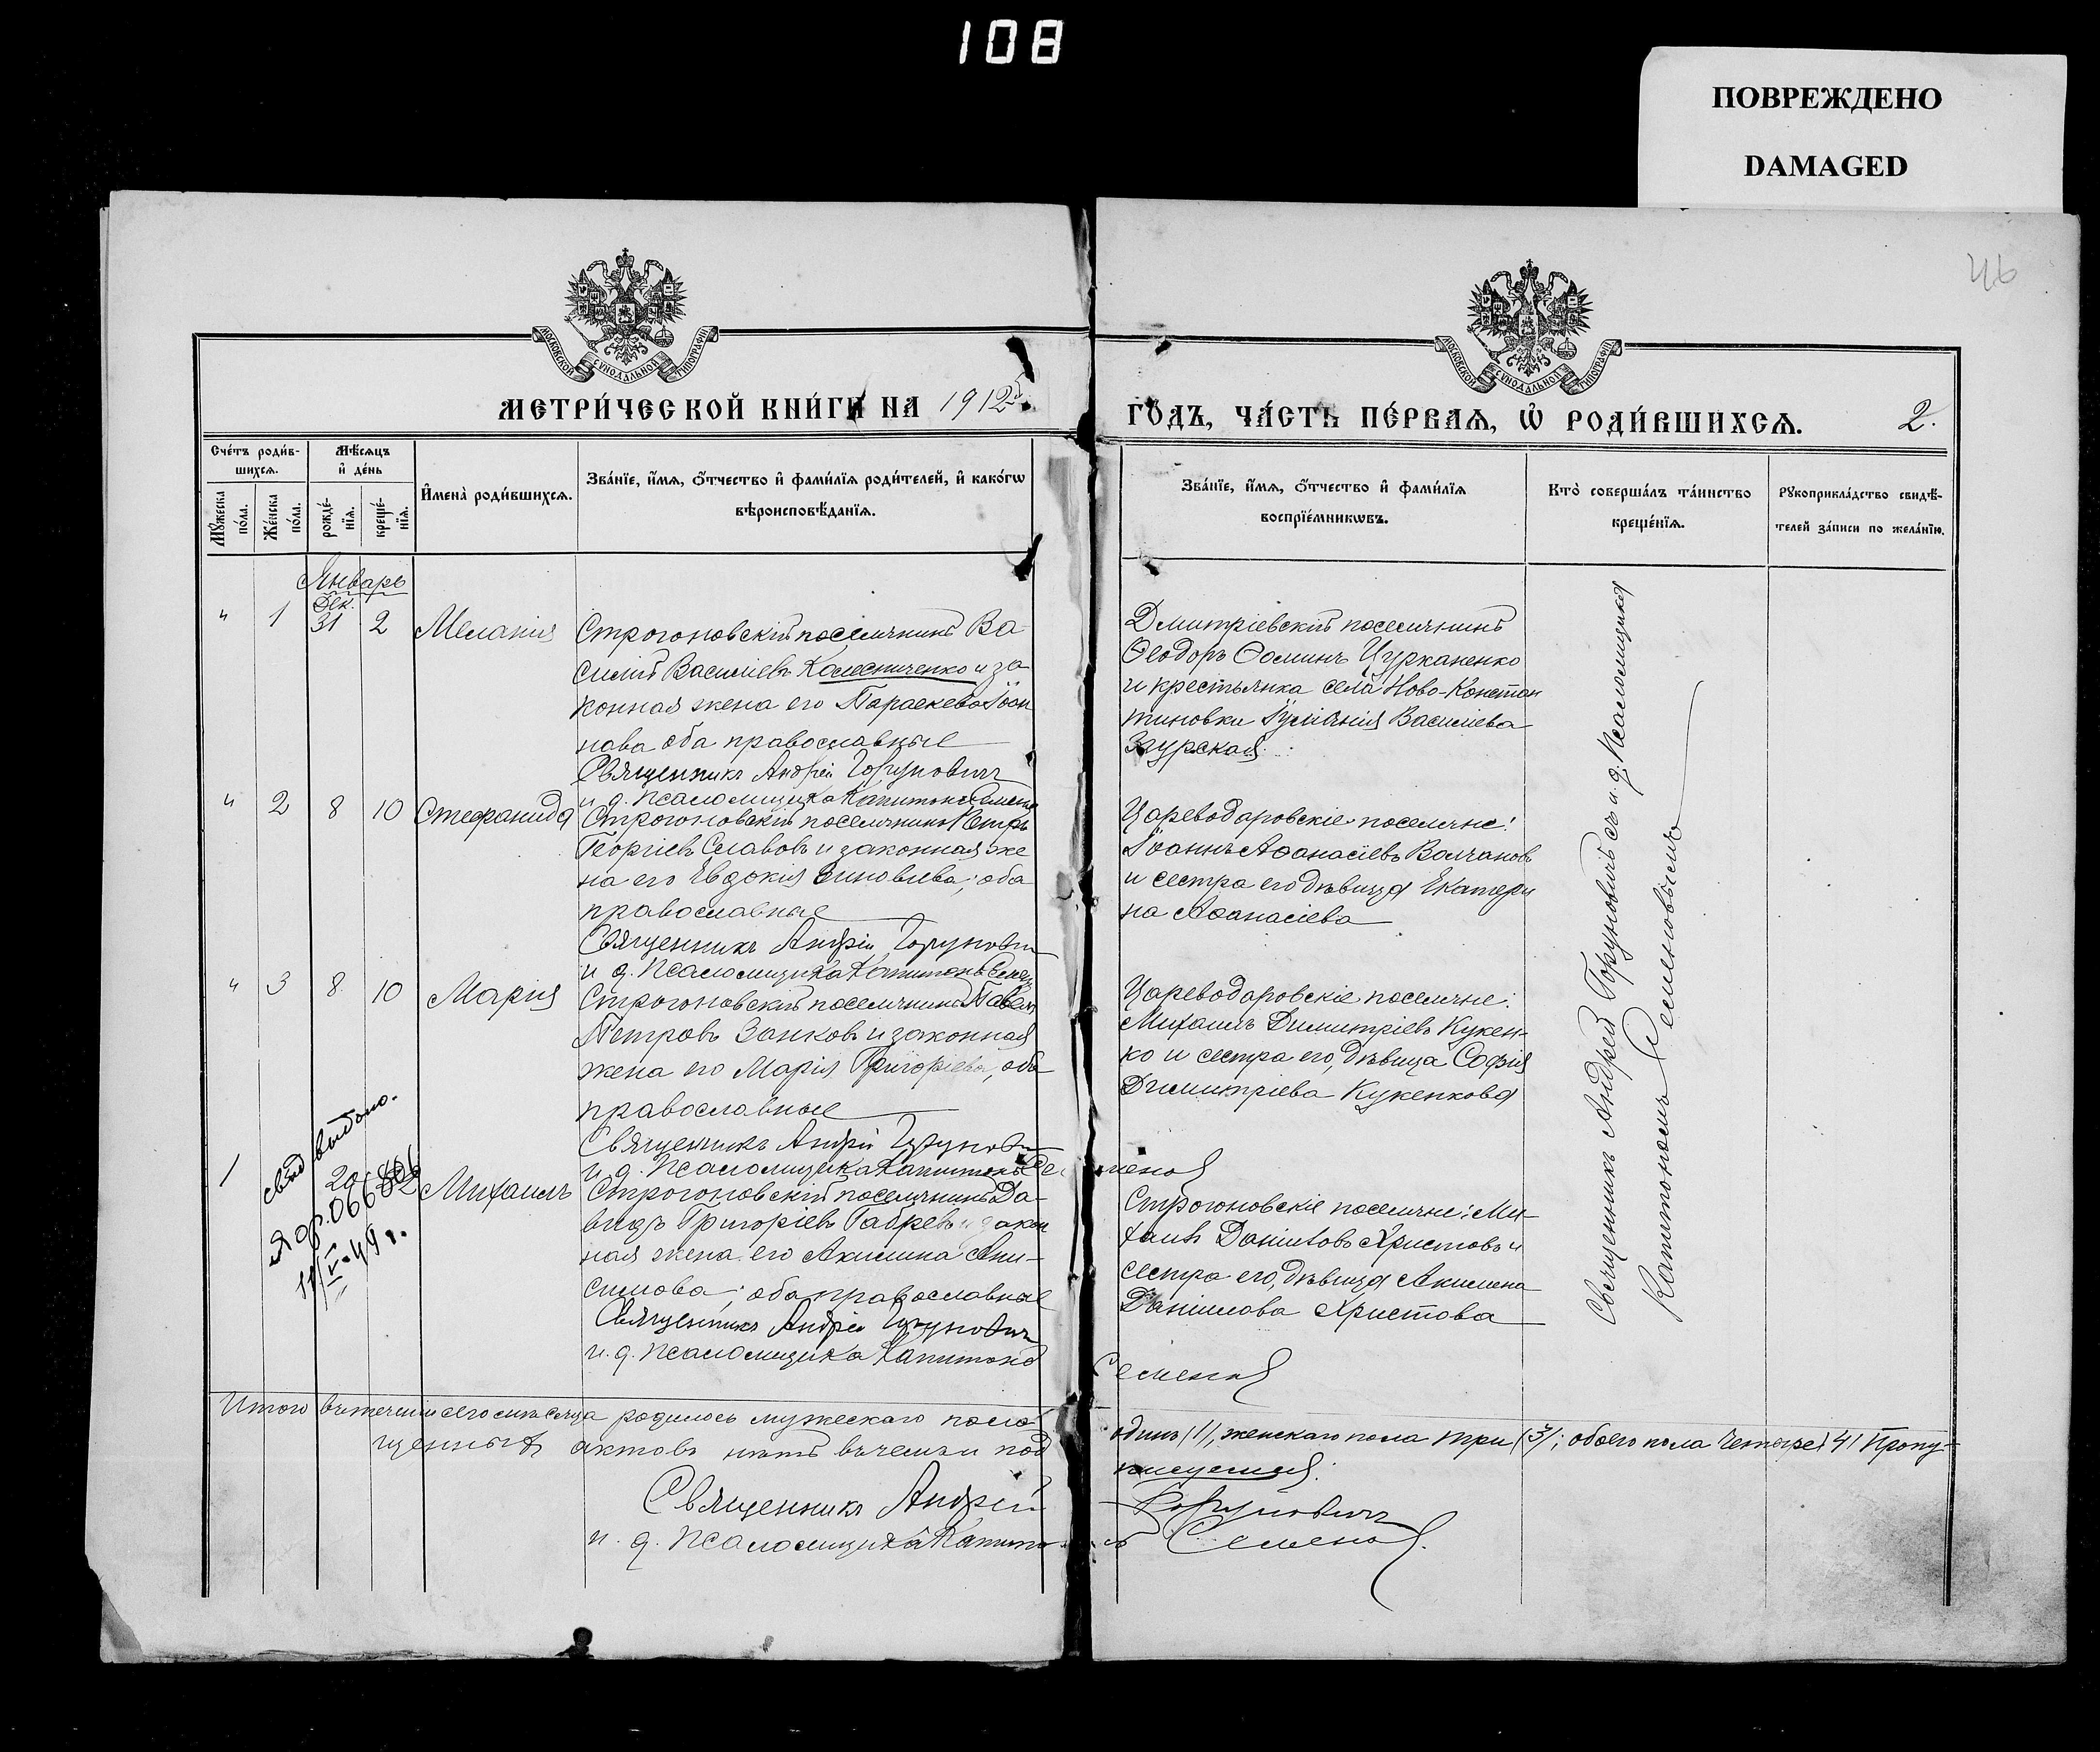 108
ПОВРЕЖДЕНО
DAMAGED
46
МОСКОВСКОЙ СѴНОДАЛЬНОЙ ТИПОГРАФІИ
МОСКОВСКОЙ СѴНОДАЛЬНОЙ ТИПОГРАФІИ
МЕТРИ́ЧЕСКОЙ КНИ́ГИ НА 1912й
ГО́ДЪ, ЧА́СТЬ ПЕ́РВАЯ, Ѡ҆ РОДИ́ВШИХСЯ. 2.
Сче́тъ роди́в-
шихся.
Мѣ́сяцъ
и҆ де́нь
Мꙋ́жеска по́ла.
Же́нска по́ла.
рожде́-нїя.
креще́-нїя.
И҆мена̀ роди́вшихся.
Зва́нїе, и҆́мя, ѻ҆́тчество и҆ фами́лїя роди́телей, и҆ како́гѡ
вѣроисповѣ́данїя.
Зва́нїе, и҆́мя, ѻ҆́тчество и҆ фами́лїя
воспрїе́мникѡвъ.
Кто̀ соверша́лъ та́инство
креще́нїя.
Рꙋкоприкла́дство свидѣ́-
телей за́писи по жела́нїю.
Январь
Дек.
" 1 31 2 Меланія
Строгоновскій поселянинъ Ва-
силій Василіевъ Колесниченко и за
конная жена его Параскева Іоан
нова оба православные
Священникъ Андрей Горунович
и д. псаломщика Капитонъ Семенов
Дмитріевскій поселянинъ
Ѳеодоръ Ѳоминъ Цурканенко
и крестьянка села Ново-Констан
тиновки Іуліанія Василіева
Згурская.
" 2 8 10 Стефанида
Строгоновскій поселянинъ Петръ
Георгіевъ Славовъ и законная же
на его Евдокія Зиновіева; оба
православные
Священникъ Андрей Горунович
и д. псаломщика Капитонъ Семен
Цареводаровскіе поселяне:
Іоаннъ Аѳанасіевъ Волчановъ
и сестра его дѣвица Екатери
на Аѳанасіева
" 3 8 10 Марія
Строгоновскій поселянинъ Павелъ
Петровъ Занковъ и законная
жена его Марія Григоріева, оба
православные
Священникъ Андрей Горунович
и д. псаломщика Капитонъ Семенов
Цареводаровскіе поселяне:
Михаилъ Димитріевъ Кукен-
ко и сестра его, дѣвица Софія
Димитріева Кукенкова
1 Михаилъ
свид выдано.
11/V-49 г.
Строгоновскій поселянинъ Да-
видъ Григоріевъ Габревъ и закон
ная жена его Акилина Ани-
симова; оба православные
Священникъ Андрей Горунович
и. д. псаломщика Капитонъ Семенов
Строгоновскіе поселяне: Ми-
хаилъ Даніиловъ Христовъ и
сестра его, дѣвица Акилина
Даніилова Христова
Священникъ Андрей Горуновичъ съ и. д. псаломщика
Капитономъ Семеновымъ
Итого въ теченіи сего мѣсяца родилось мужескаго пола одинъ (1), женскаго пола три (3); обоего пола четыре (4) Пропу-
щенныхъ актовъ нѣтъ въ чемъ и подписуемся:
Священникъ Андрей Горунович
и. д. псаломщика Капитонъ Семенов.